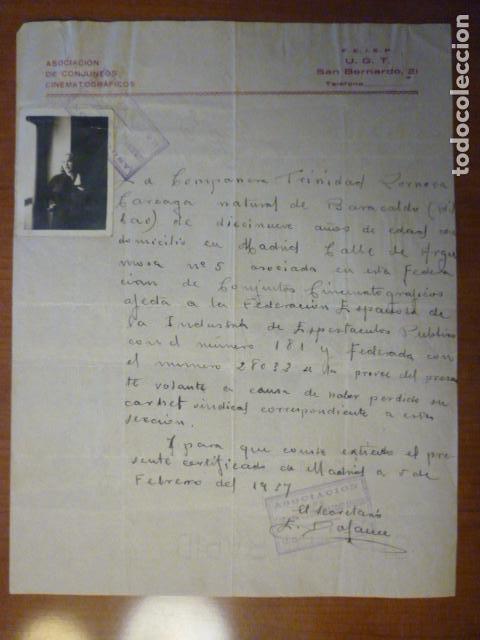 ASOCIACION
DE CONJUNTOS
CINEMATOGRÁFICOS
F.E.I.E.P.
U. G. T.
San Bernardo, 21
Teléfono
La Compañera Trinidad
natural de Baracaldo (Bil
bao) de diecinueve años de edad con
domicilio en Madrid Calle de Argu
mosa nº 5 asociada en esta Federa
cian de Conjuntos Cinematograficos
afecta a la Federacion Española de
la Industria de Espectaculos Publicos
con el número 181 y Federada con
el numero 28033 se la provee del presen
te volante a causa de haber perdido su
carnet sindical correspondiente a esta
sección.
Y para que conste extiendo el pre
sente certificado en Madrid a 5 de
Febrero del 1937
ASOCIACION
El secretario
todocoleccion.net